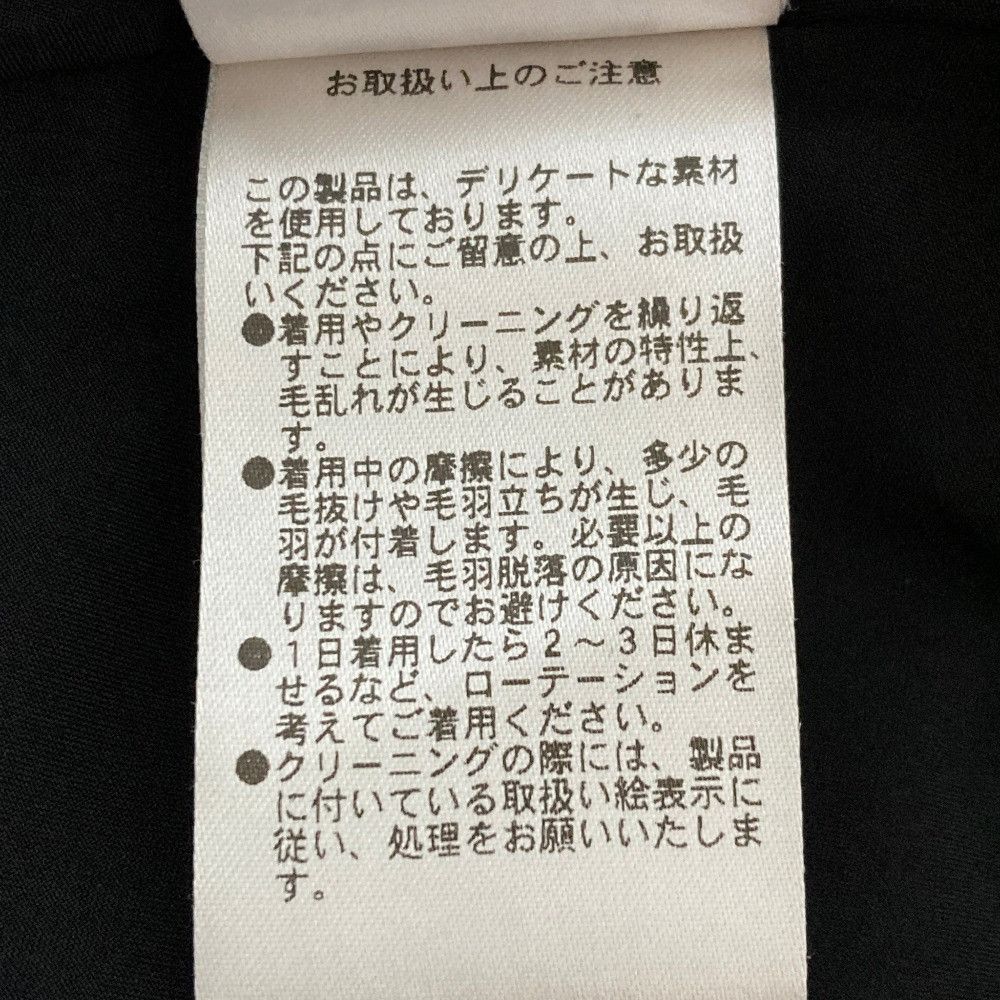 お取扱い上のご注意
この製品は、デリケートな素材
を使用しております。
下記の点にご留意の上、お取扱
いください。
●着用やクリーニングを繰り返
すことにより、素材の特性上、
毛乱れが生じることがありま
す。
●着用中の摩擦により、多少の
毛抜けや毛羽立ちが生じ、毛
羽が付着します。必要以上の
摩擦は、毛羽脱落の原因にな
りますのでお避けください。
●1日着用したら2～3日休ま
せるなど、ローテーションを
考えてご着用ください。
●クリーニングの際には、製品
に付いている取扱い絵表示に
従い、処理をお願いいたしま
す。